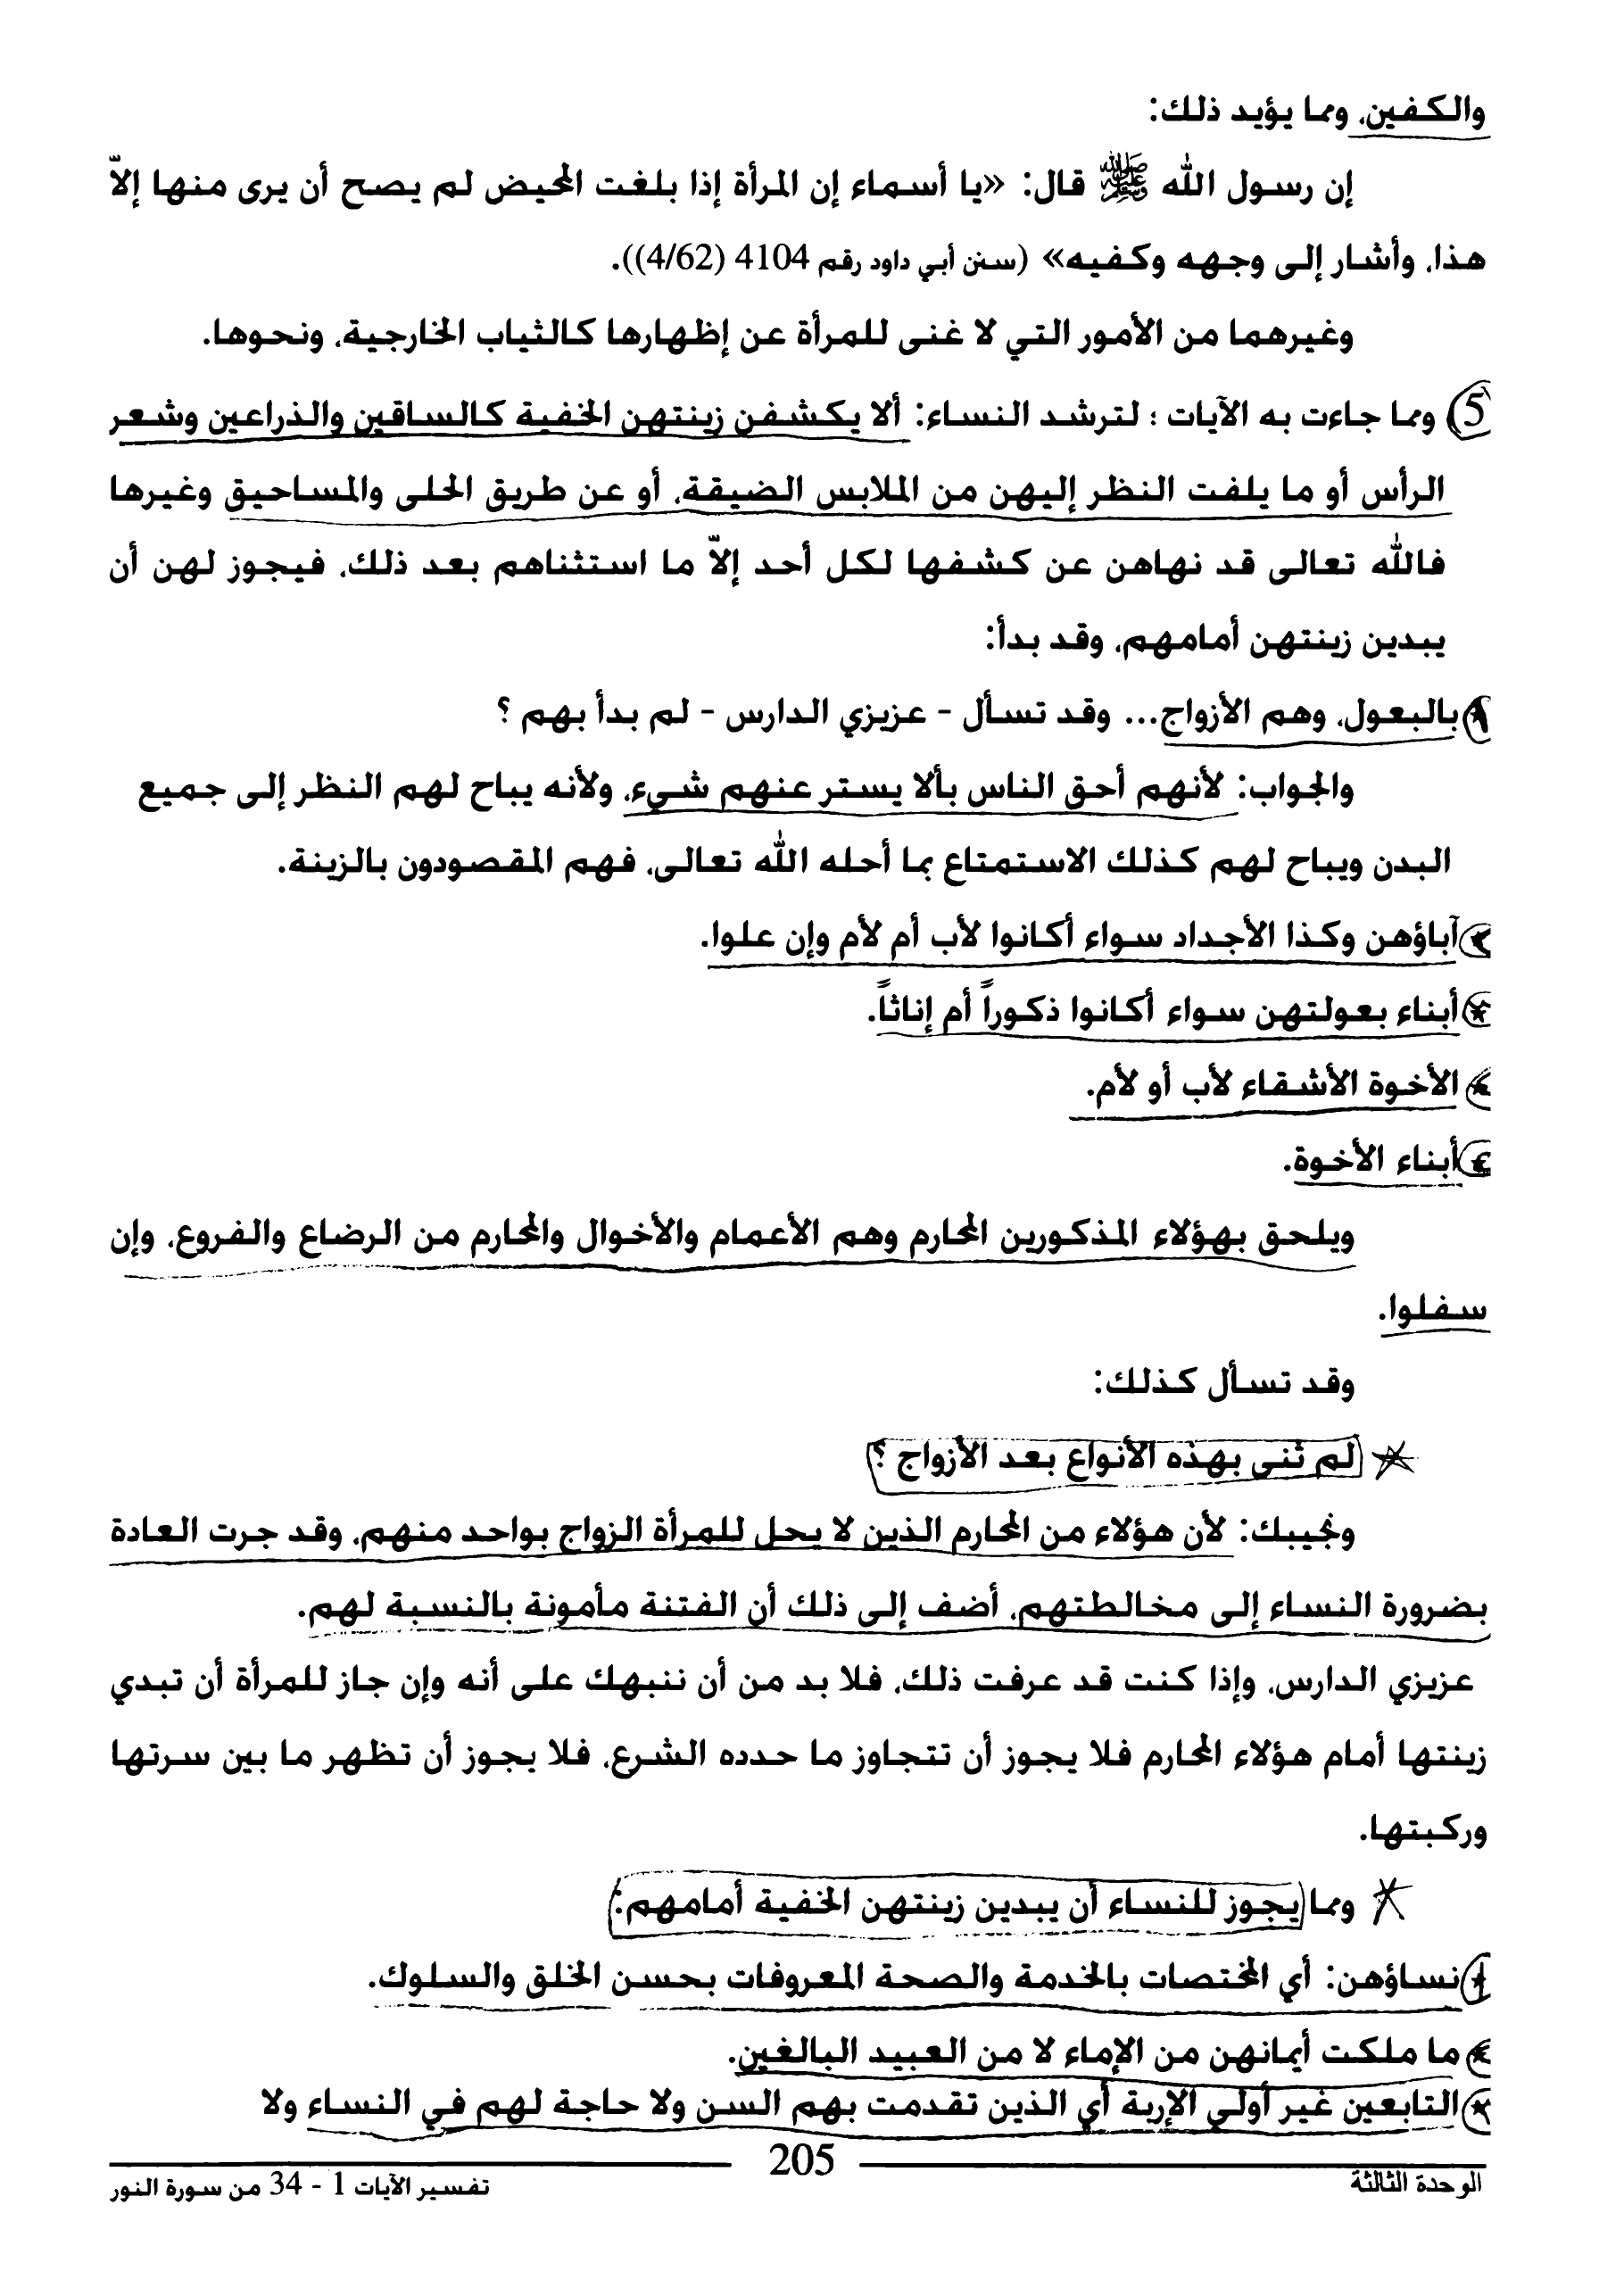 والكفين، ومما يؤيد ذلك:
إن رسول الله ﷺ قال: «يا أسماء إن المرأة إذا بلغت المحيض لم يصح أن يرى منها إلاّ
هذا، وأشار إلى وجهه وكفيه» (سنن أبي داود رقم 4104 (4/62)).
وغيرهما من الأمور التي لا غنى للمرأة عن إظهارها كالثياب الخارجية، ونحوها.
5) ومما جاءت به الآيات ؛ لترشد النساء: ألا يكشفن زينتهن الخفية كالساقين والذراعين وشعر
الرأس أو ما يلفت النظر إليهن من الملابس الضيقة، أو عن طريق الحلى والمساحيق وغيرها
فالله تعالى قد نهاهن عن كشفها لكل أحد إلاّ ما استثناهم بعد ذلك، فيجوز لهن أن
يبدين زينتهن أمامهم، وقد بدأ:
* بالبعول، وهم الأزواج... وقد تسأل - عزيزي الدارس - لم بدأ بهم ؟
والجواب: لأنهم أحق الناس بألا يستر عنهم شيء، ولأنه يباح لهم النظر إلى جميع
البدن ويباح لهم كذلك الاستمتاع بما أحله الله تعالى، فهم المقصودون بالزينة.
* آباؤهن وكذا الأجداد سواء أكانوا لأب أم لأم وإن علوا.
* أبناء بعولتهن سواء أكانوا ذكوراً أم إناثاً.
* الأخوة الأشقاء لأب أو لأم.
* أبناء الأخوة.
ويلحق بهؤلاء المذكورين المحارم وهم الأعمام والأخوال والمحارم من الرضاع والفروع، وإن
سفلوا.
وقد تسأل كذلك:
* لم ثنى بهذه الأنواع بعد الأزواج ؟
ونجيبك: لأن هؤلاء من المحارم الذين لا يحل للمرأة الزواج بواحد منهم، وقد جرت العادة
بضرورة النساء إلى مخالطتهم، أضف إلى ذلك أن الفتنة مأمونة بالنسبة لهم.
عزيزي الدارس، وإذا كنت قد عرفت ذلك، فلا بد من أن ننبهك على أنه وإن جاز للمرأة أن تبدي
زينتها أمام هؤلاء المحارم فلا يجوز أن تتجاوز ما حدده الشرع، فلا يجوز أن تظهر ما بين سرتها
وركبتها.
* ومما يجوز للنساء أن يبدين زينتهن الخفية أمامهم:
* نساؤهن: أي المختصات بالخدمة والصحة المعروفات بحسن الخلق والسلوك.
* ما ملكت أيمانهن من الإماء لا من العبيد البالغين.
* التابعين غير أولي الإربة أي الذين تقدمت بهم السن ولا حاجة لهم في النساء ولا
205
الوحدة الثالثة
تفسير الآيات 1 - 34 من سورة النور